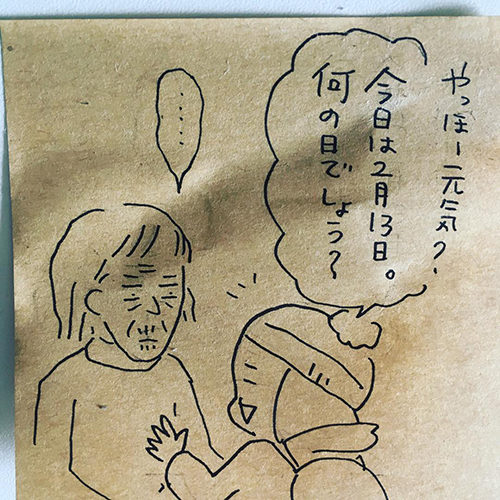 やっほー元気?
今日は2月13日。
何の日でしょう?
……